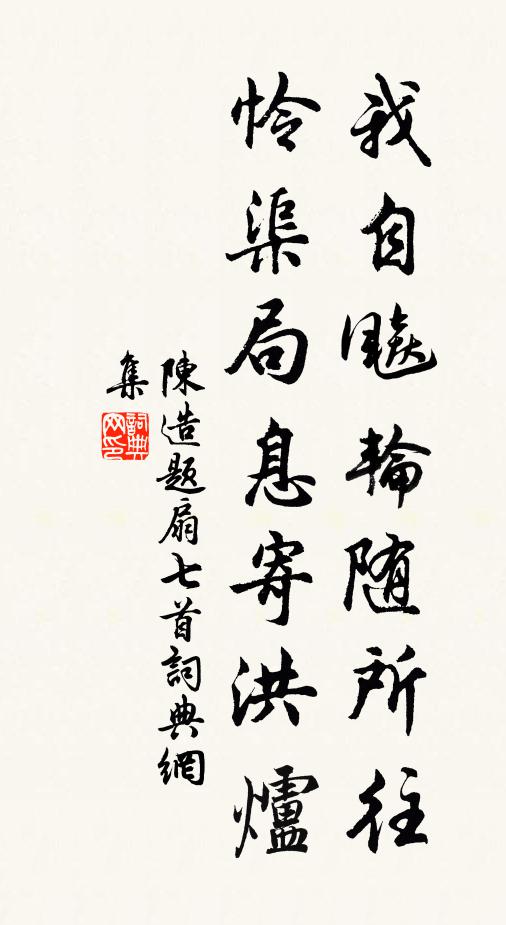 我自飈輪随所往
怜渠局息寄洪爐
陳造题扇七首詞典網
集
詞典网印